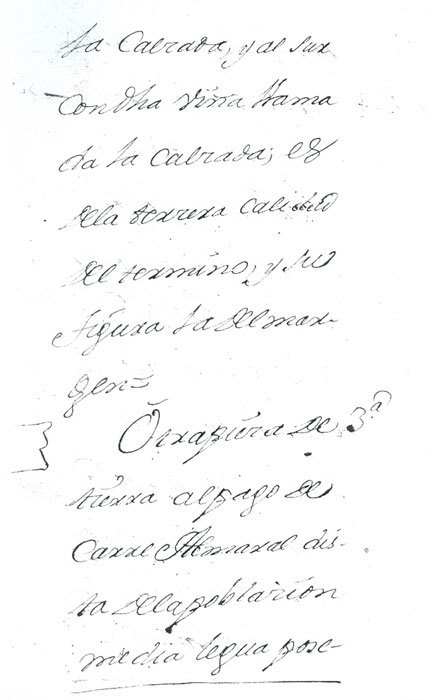 la Calrada, y al sur
con dha viña llama
da la Calrada; es
de la terzera calidad
del termino, y su
figura la del mar-
gen=
Otra pieza de 3ª
tierra al pago de
Carre Almaral dis-
ta de la poblarion
media legua pose-